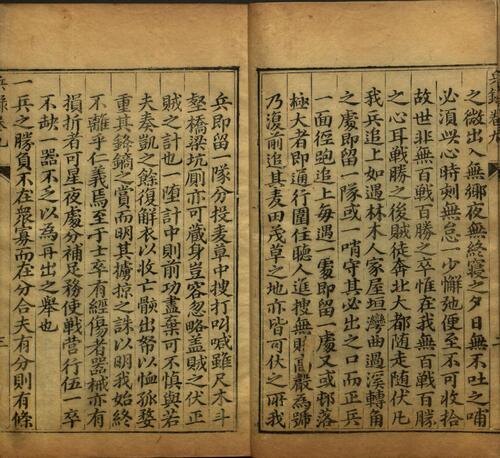 之微出入無鄉夜無終寢之夕日無不吐之哺
必須此心時刻無怠一少懈弛便至不可收拾
故世非無百戰百勝之卒惟在我無百戰百勝
之心耳戰勝之後賊徒奔北大都隨走隨伏凡
我兵追上如遇林木人家屋垣灣曲過溪轉角
之處即留一隊或一哨守其必出之口而正兵
一面徑跑追上每遇一處即留一處又或邨落
極大者即通行圍住聽人進搜無嚴為號
乃復前追其麦田茂草之地亦皆可伏之所我
兵即留一隊分投麦草中搜打叫喊雖尺木斗
壑橋梁坑厠亦可藏身豈容忽略盖賊之伏正
賊之計也一墮計中則前功盡棄可不慎與若
夫奏凱之餘復解衣以收亡骸出帑以恤孤嫠
重其鋒鏑之賞而明其擄掠之誅以明我始終
不離乎仁義焉至于士卒有經傷者器械亦有
損折者可星夜處分補足務使戰營行伍一卒
不缺 器不乏以為再出之舉也
一兵之勝負不在眾寡而在分合夫有分則有條
兵錄卷九 三